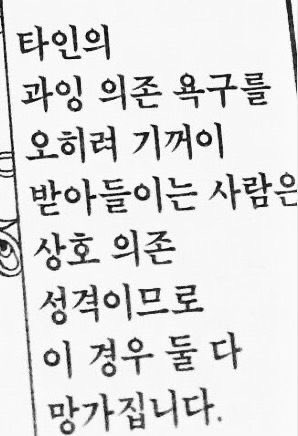 타인의
과잉 의존 욕구를
오히려 기꺼이
받아들이는 사람은
상호 의존
성격이므로
이 경우 둘 다
망가집니다.